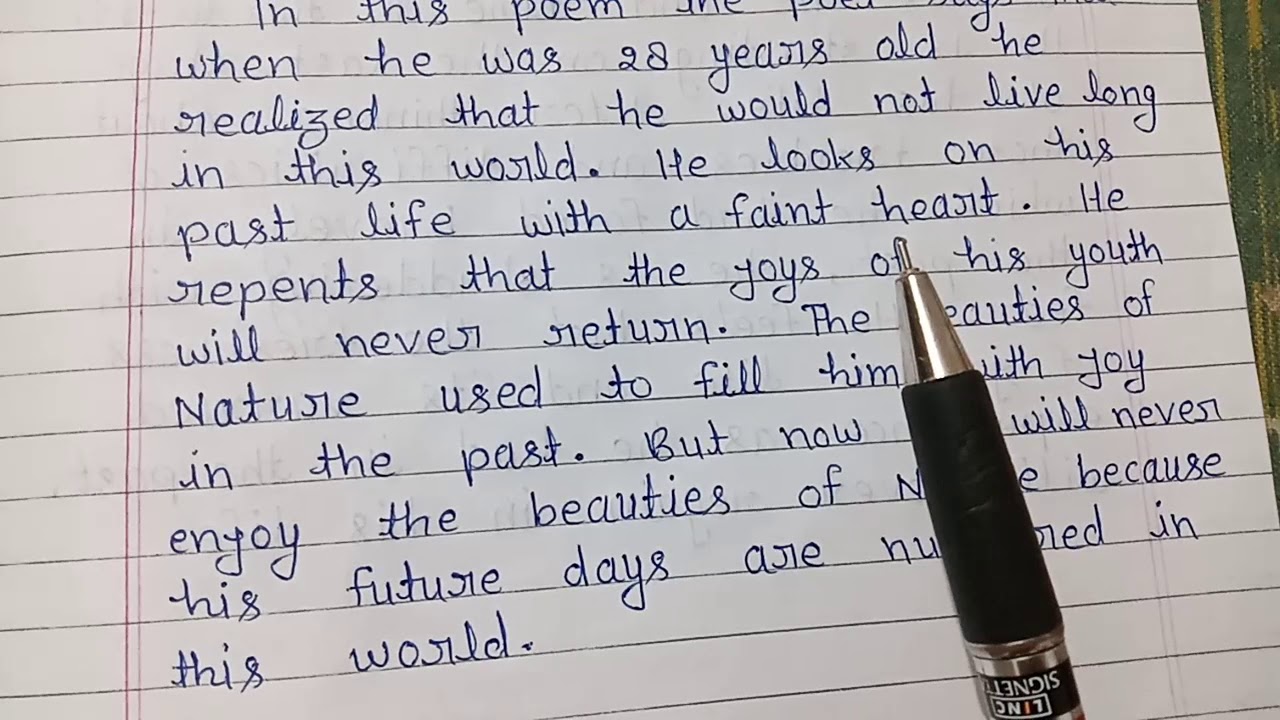 In this poem the poet says that
when he was 28 years old he
realized that he would not live long
in this world. He looks on his
past life with a faint heart. He
repents that the joys of his youth
will never return. The beauties of
Nature used to fill him with joy
in the past. But now will never
enjoy the beauties of Nature because
his future days are numbered in
this world.
LINC
SIGNET